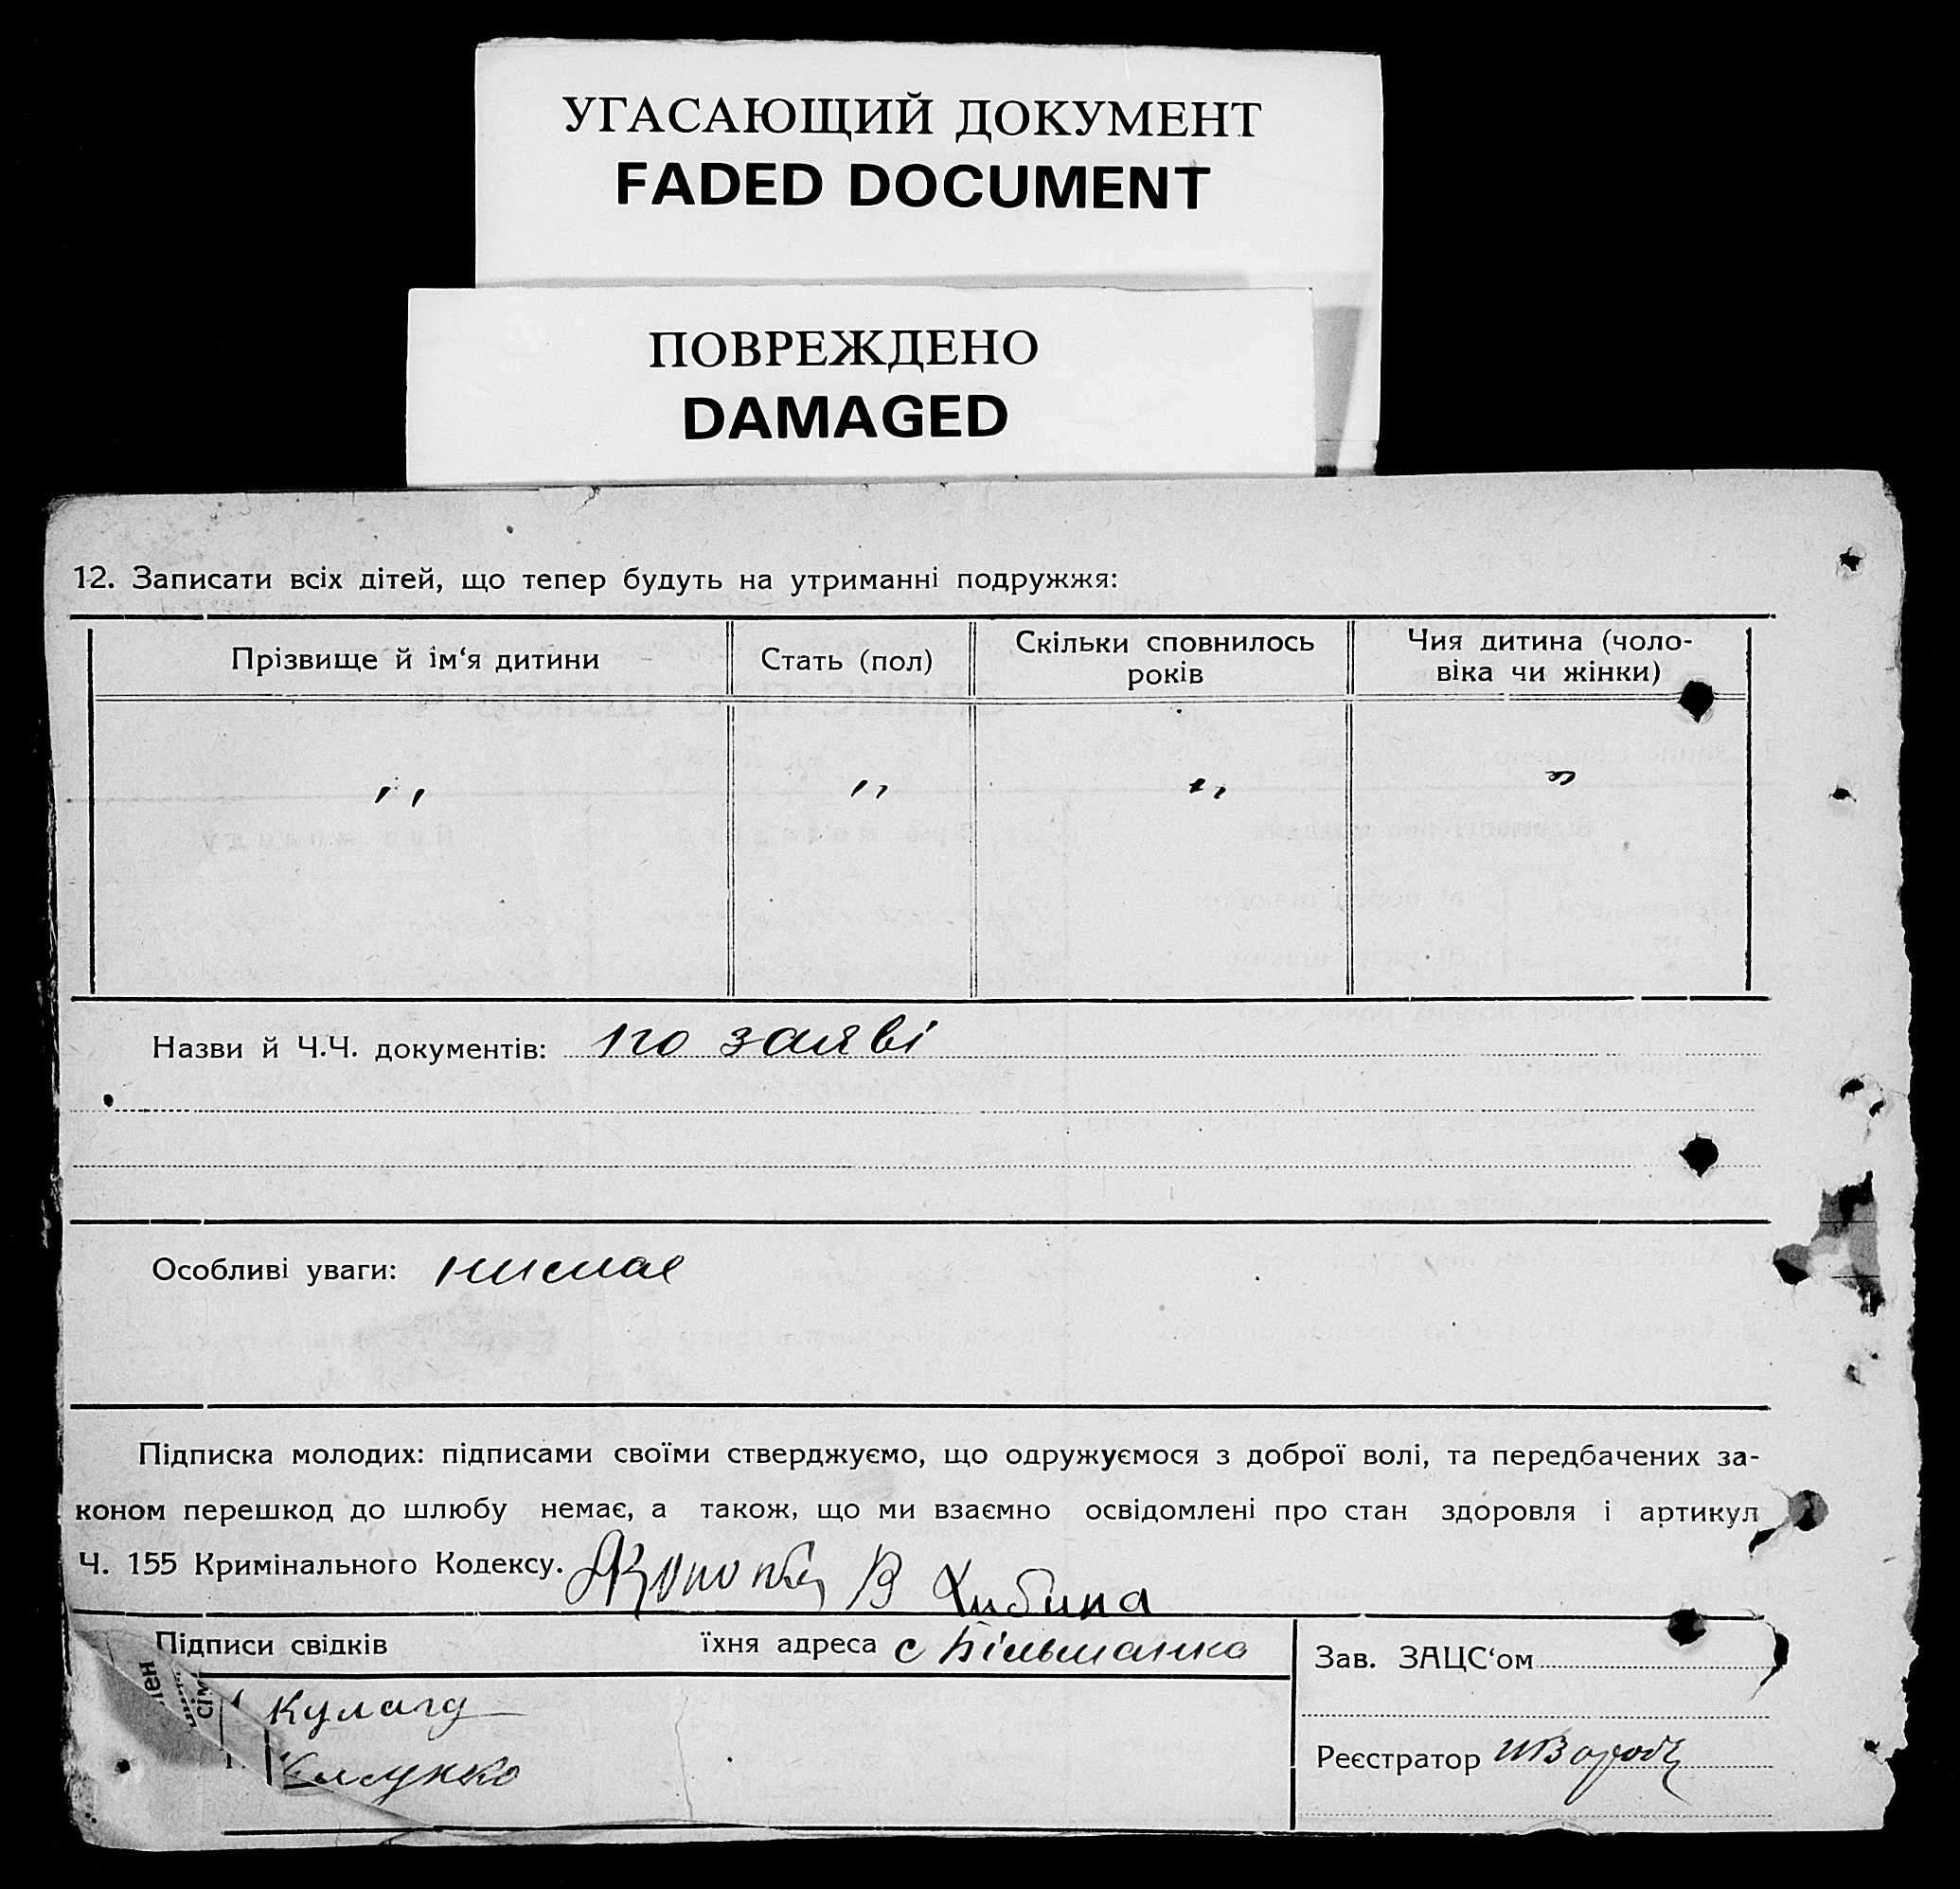 УГАСАЮЩИЙ ДОКУМЕНТ
FADED DOCUMENT
ПОВРЕЖДЕНО
DAMAGED
12. Записати всіх дітей, що тепер будуть на утриманні подружжя:
Прізвище й ім‘я дитини Стать (пол) Скільки сповнилось років Чия дитина (чоло-віка чи жінки)
„ „ „ „
Назви й Ч.Ч. документів: по заяві
Особливі уваги: нимае
Підписка молодих: підписами своїми стверджуємо, що одружуємося з доброї волі, та передбачених за-
коном перешкод до шлюбу немає, а також, що ми взаємно освідомлені про стан здоровля і артикул
Ч. 155 Кримінального Кодексу. В Хибина
Підписи свідків їхня адреса с Більманка Зав. ЗАЦС‘ом
Кулага
Реєстратор